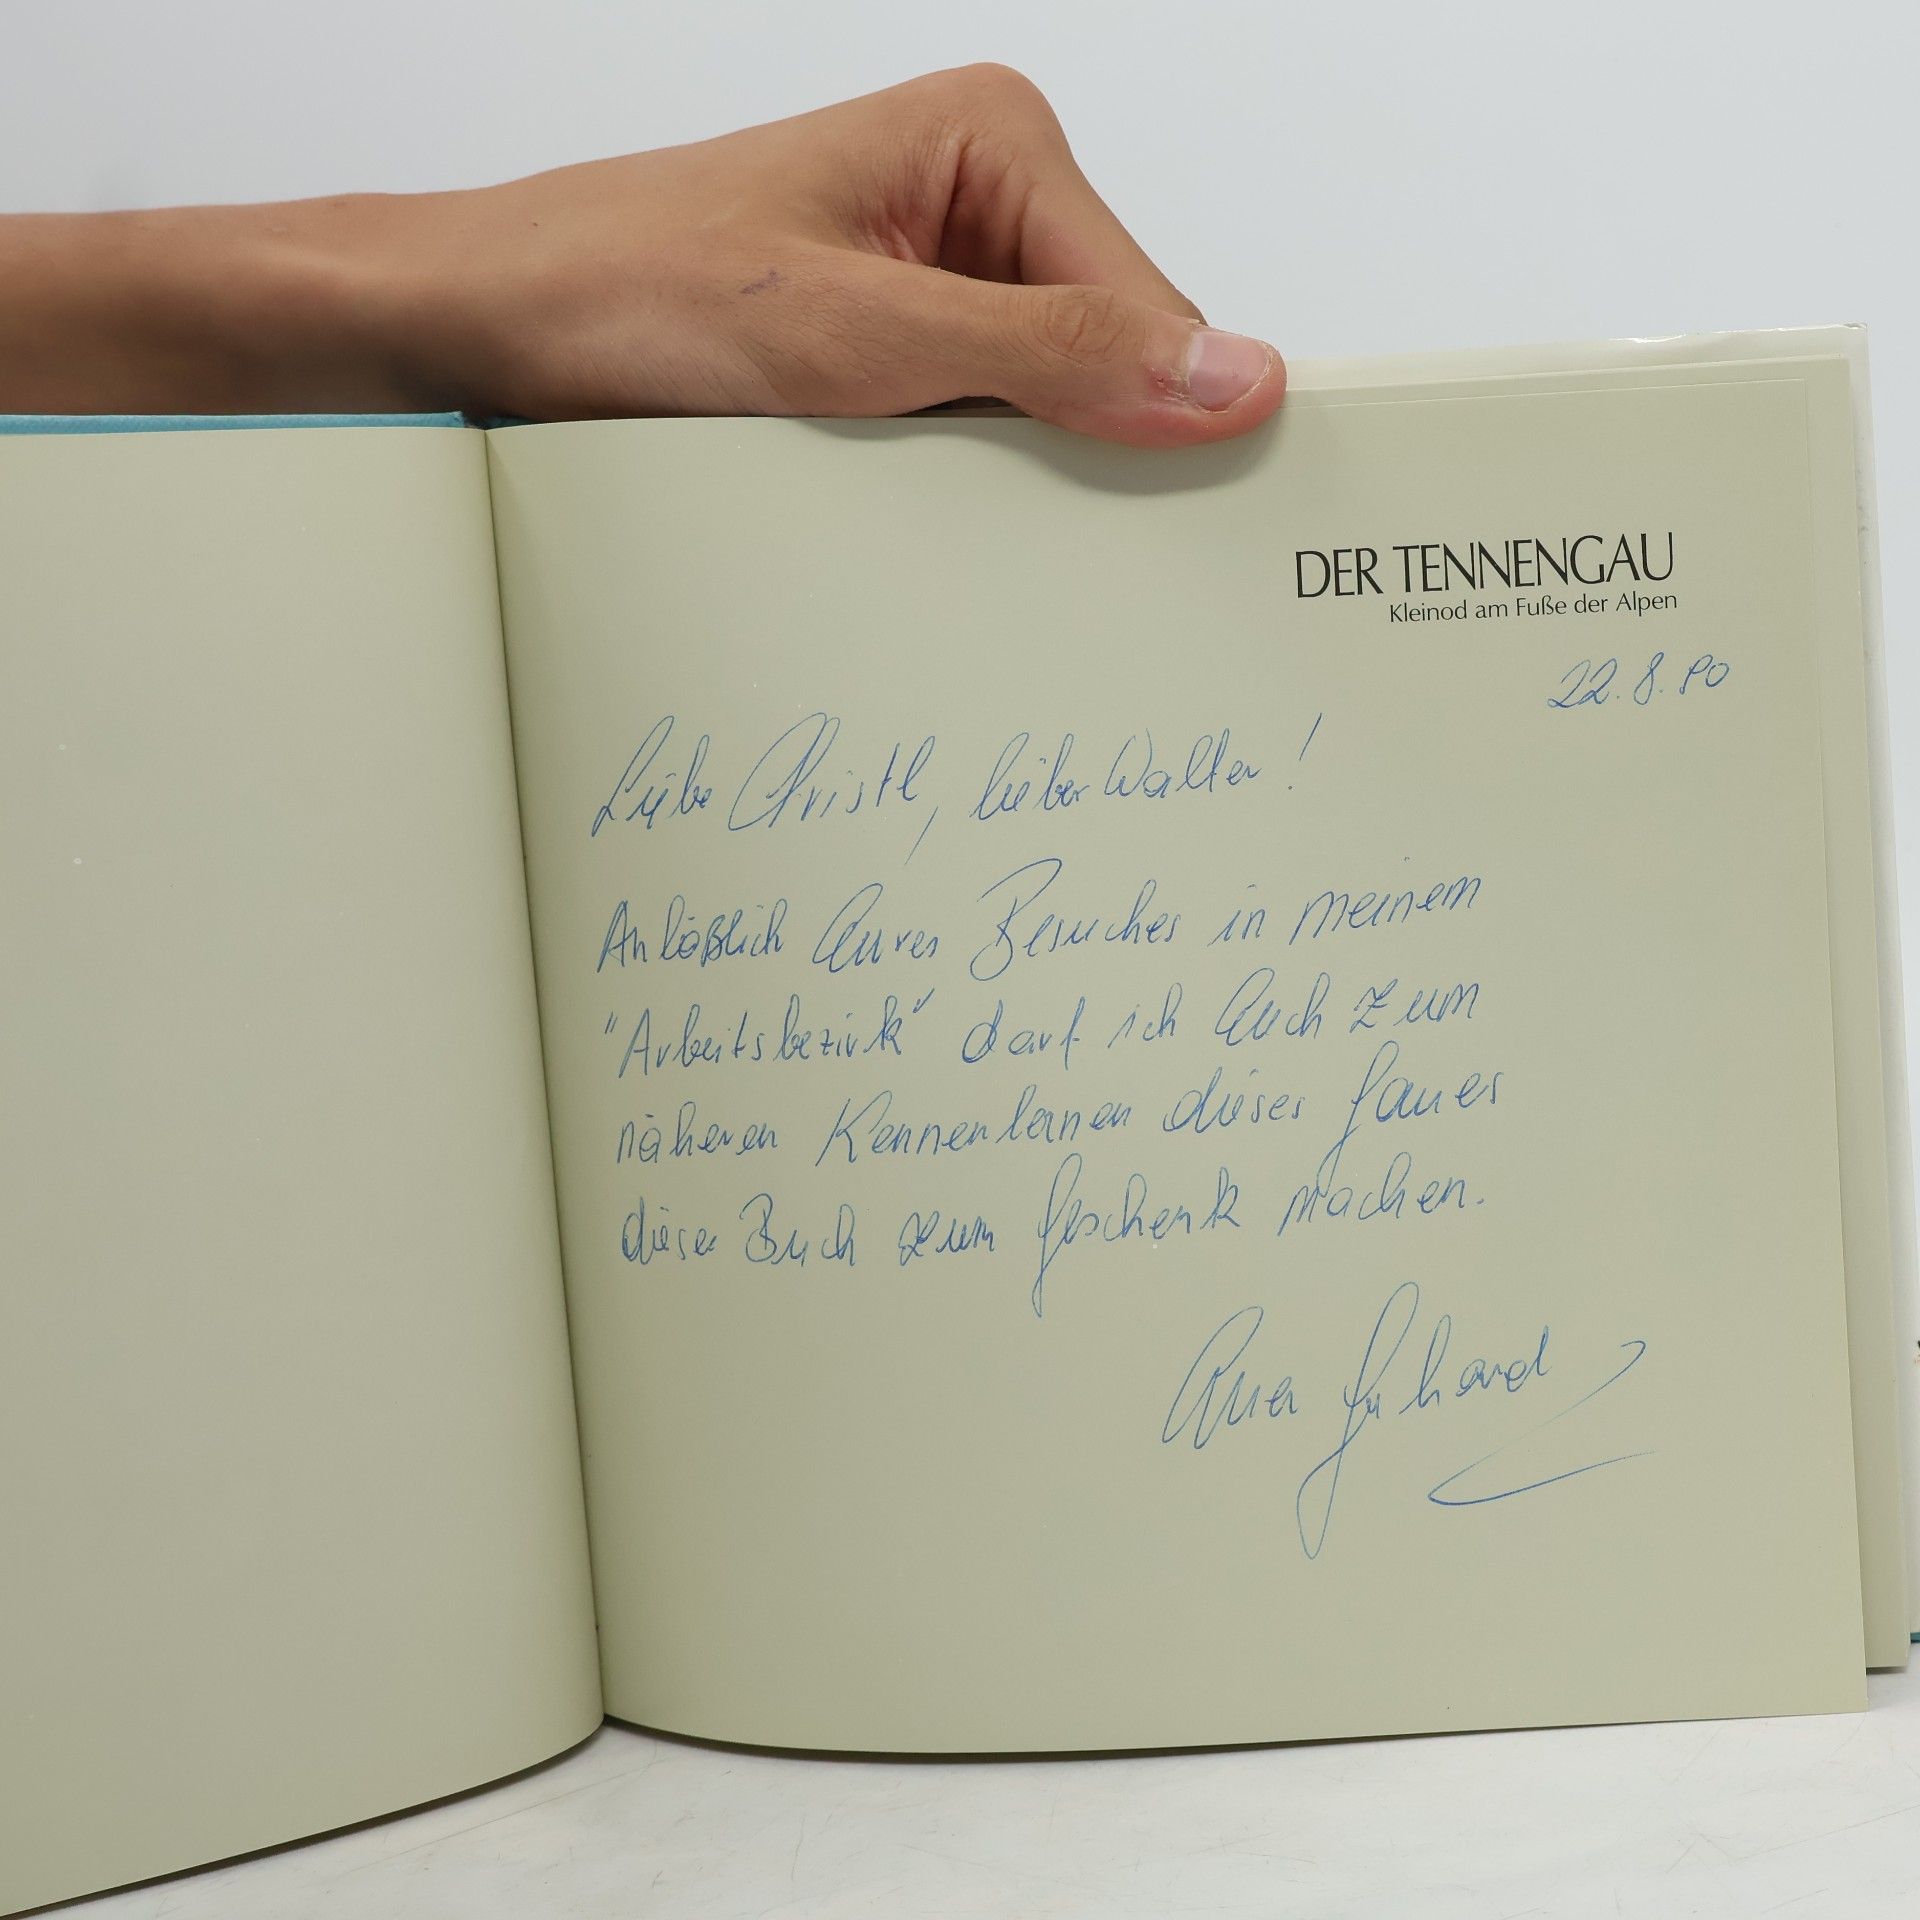 DER TENNENGAU
Kleinod am Fuße der Alpen
22.8.90
Liebe Christl, lieber Walter!
Anläßlich Eures Besuches in meinem
"Arbeitsbezirk" darf ich Euch zum
näheren Kennenlernen dieses Gaues
dieses Buch zum Geschenk machen.
Euer Gerhard